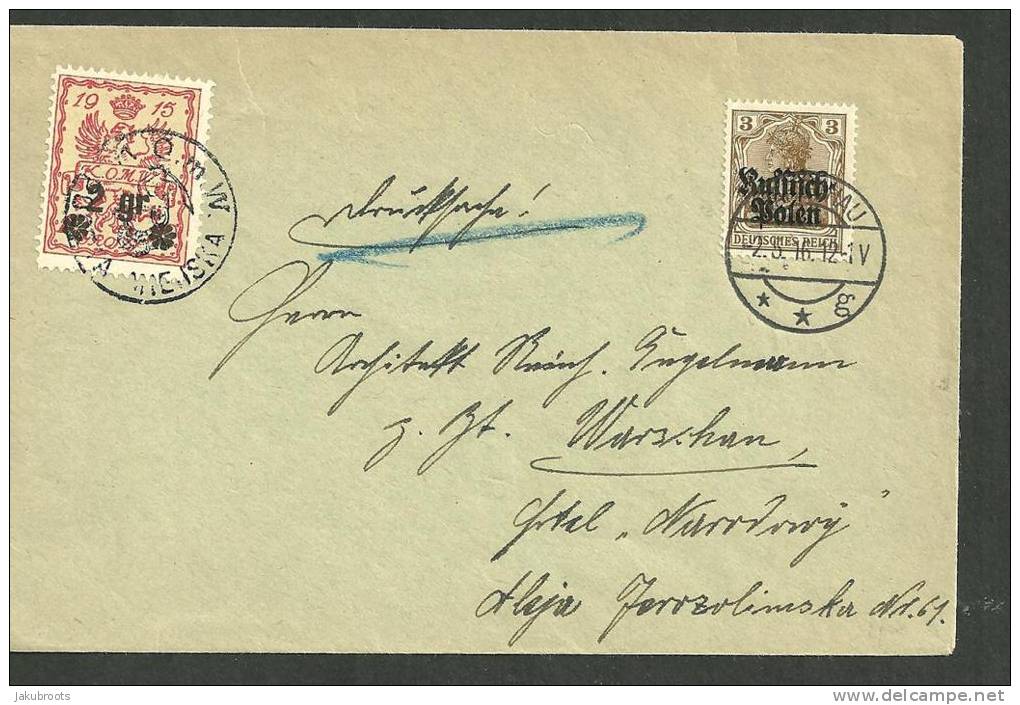 19 15
K.O.M.W.
2 gr.
K.O.m.W
MIEJSKA
3 3
Russisch-
Polen
DEUTSCHES REICH
AU
2.3.16.12-1V
Drucksache!
Herrn
Architekt Kugelmann
z. Zt. Warschau,
Hotel „Narodowy"
Aleja Jerozolimska Nr. 61.
jakubroots
delcampe.net